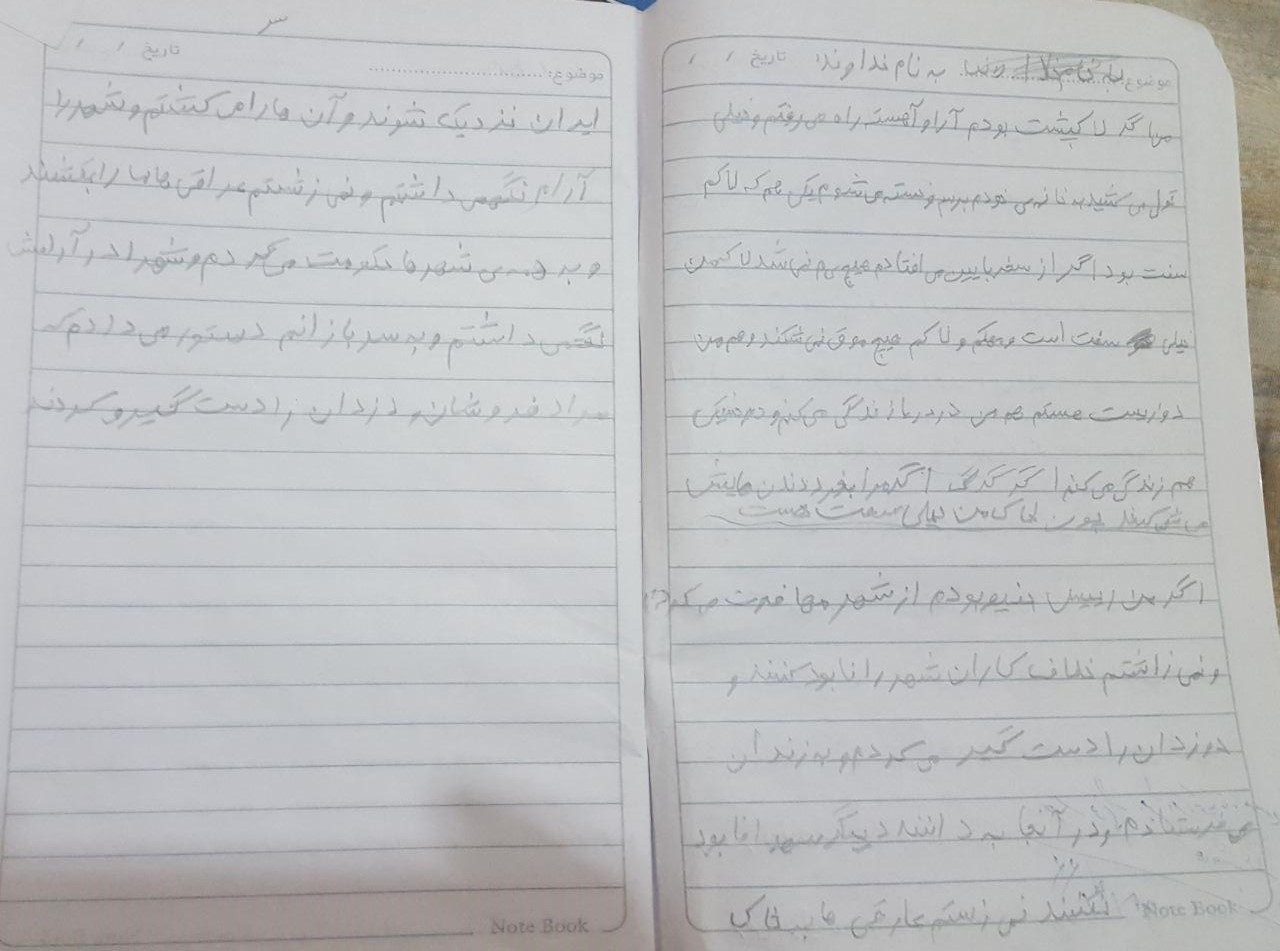 موضوع به نام خداوند تاریخ / /
من اگر لاکپشت بودم آرام و آهسته راه می رفتم و خیلی
تول می کشید به خانه ی خودم برسم و خسته می شوم یکی هم که لاکم
سفت بود اگر از سخره پایین می افتادم هیچ یم نمی شد لاک من
خیلی سفت است و محکم و لاکم هیچ موقع نمی شکند و هم من
دوزیست هستم هم من در دریا زندگی می کنم و در خشکی
هم زندگی می کنم اگر گرگی اگه مرا بخورد دندن هایش
می شکند چون لاک من خیلی سفت هست
اگر من رییس بودم از شهر محافزت می کردم
و نمی زاشتم خلاف کاران شهر را نابود کنند و
دوزدان را دست گیر می کردم و به زندان
می فرستادم و در آنجا به دیگر شهر را نابود
نکنند نمی زاشتم عارقی ها به خاک
سر
موضوع: تاریخ / /
ایران نزدیک شوند و آن ها را می کشتم و شهر را
آرام نگهمی داشتم و نمی زاشتم عراقی ها ما را بکشند
و به همه ی شهر ها حکومت می کردم و شهر را در آرامش
نگهمی داشتم و به سربازانم دستور می دادم که
مواد فروشان و دزدان را دست گیر و کردند
Note Book
Note Book